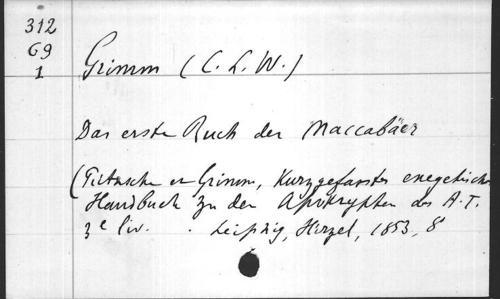 312
69
1
Grimm (C. L. W.)
Das erste Buch der Maccabäer
(Fritzsche en Grimm, Kurzgefasstes exegetisches
Handbuch zu den Apokryphen des A.T.
3e liv. . Leipzig, Hirzel, 1853, 8°